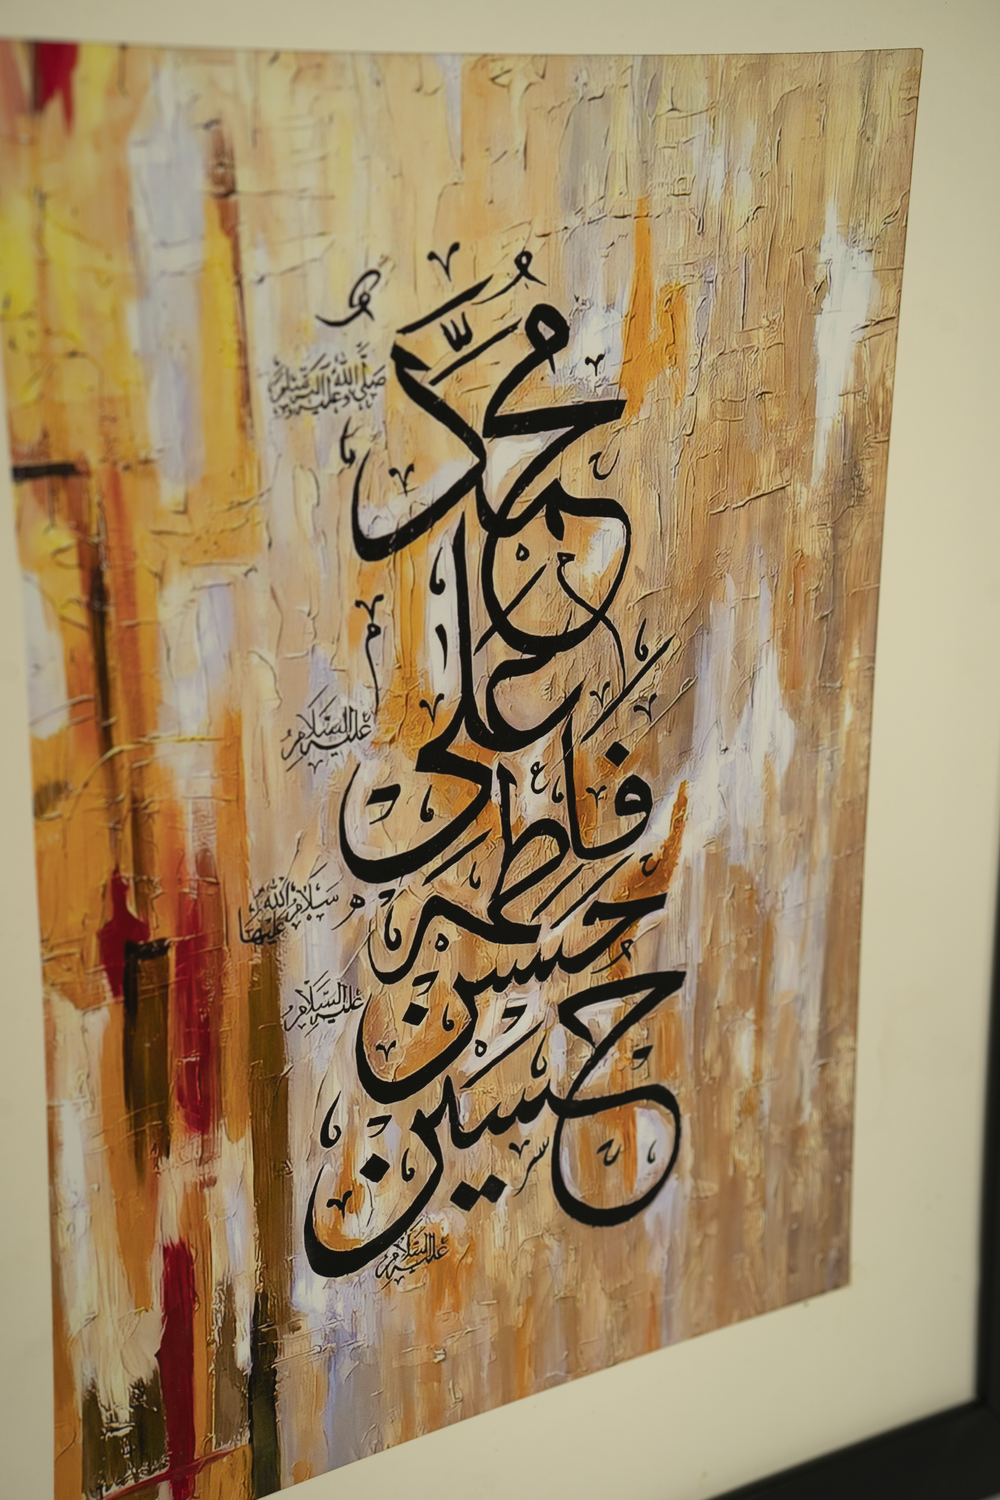 محمد
صلى الله عليه وآله وسلم
علي
عليه السلام
فاطمة
سلام الله عليها
حسن
عليه السلام
حسين
عليه السلام